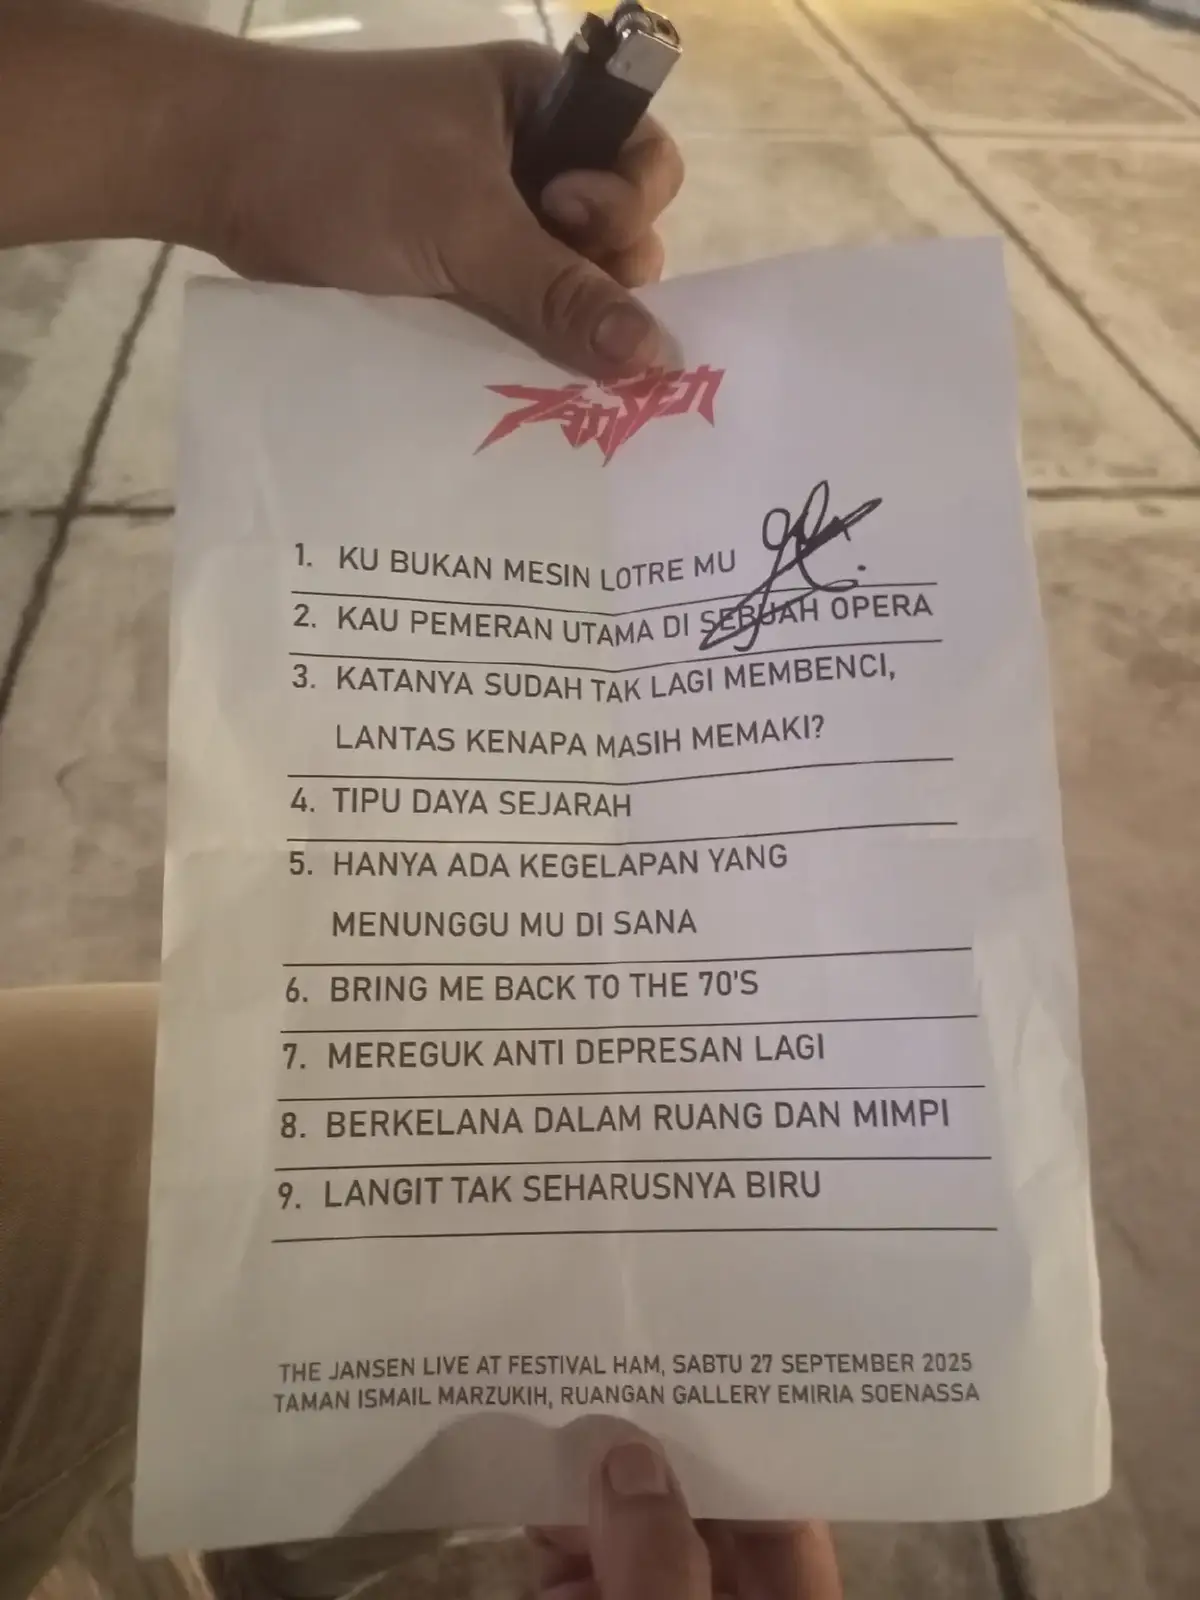 Jansen
1. KU BUKAN MESIN LOTRE MU
2. KAU PEMERAN UTAMA DI SEBUAH OPERA
3. KATANYA SUDAH TAK LAGI MEMBENCI,
LANTAS KENAPA MASIH MEMAKI?
4. TIPU DAYA SEJARAH
5. HANYA ADA KEGELAPAN YANG
MENUNGGU MU DI SANA
6. BRING ME BACK TO THE 70'S
7. MEREGUK ANTI DEPRESAN LAGI
8. BERKELANA DALAM RUANG DAN MIMPI
9. LANGIT TAK SEHARUSNYA BIRU
THE JANSEN LIVE AT FESTIVAL HAM, SABTU 27 SEPTEMBER 2025
TAMAN ISMAIL MARZUKIH, RUANGAN GALLERY EMIRIA SOENASSA